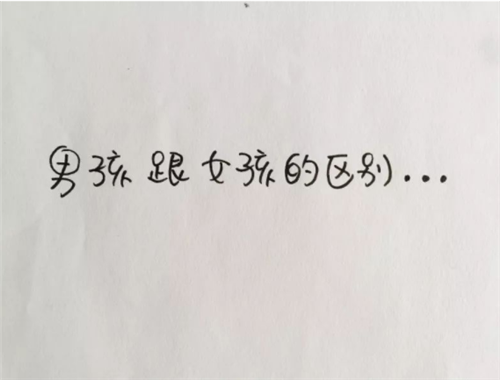 男孩跟女孩的区别...